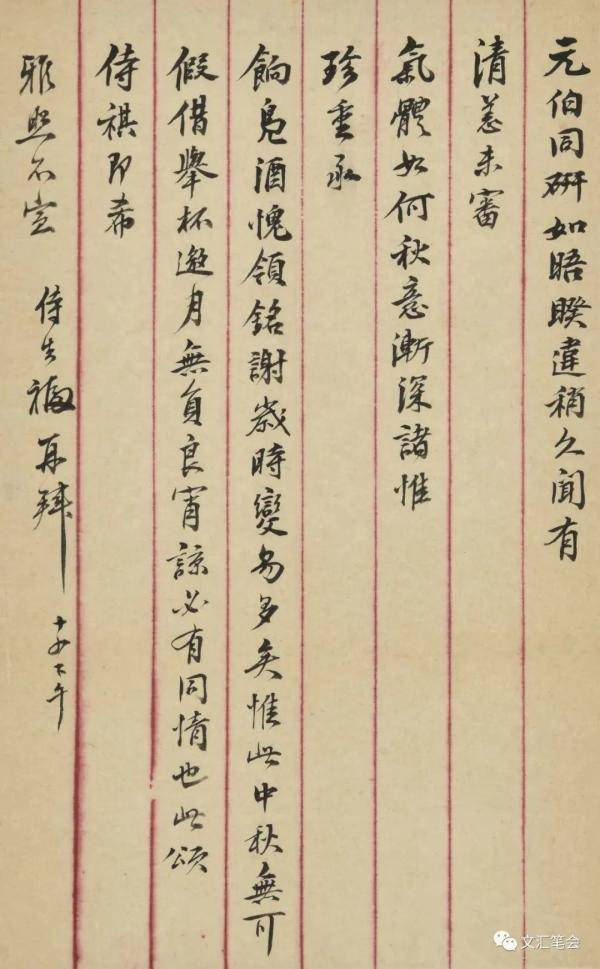 元伯同硏如晤暌違稍久聞有
清恙未審
氣體如何秋意漸深諸惟
珍重承
餉鳧酒愧領銘謝歲時變易多矣惟此中秋無可
假借舉杯邀月無負良宵諒必有同情也此頌
侍祺即希
雅照不宣
侍生 再拜
十四下午
文汇笔会